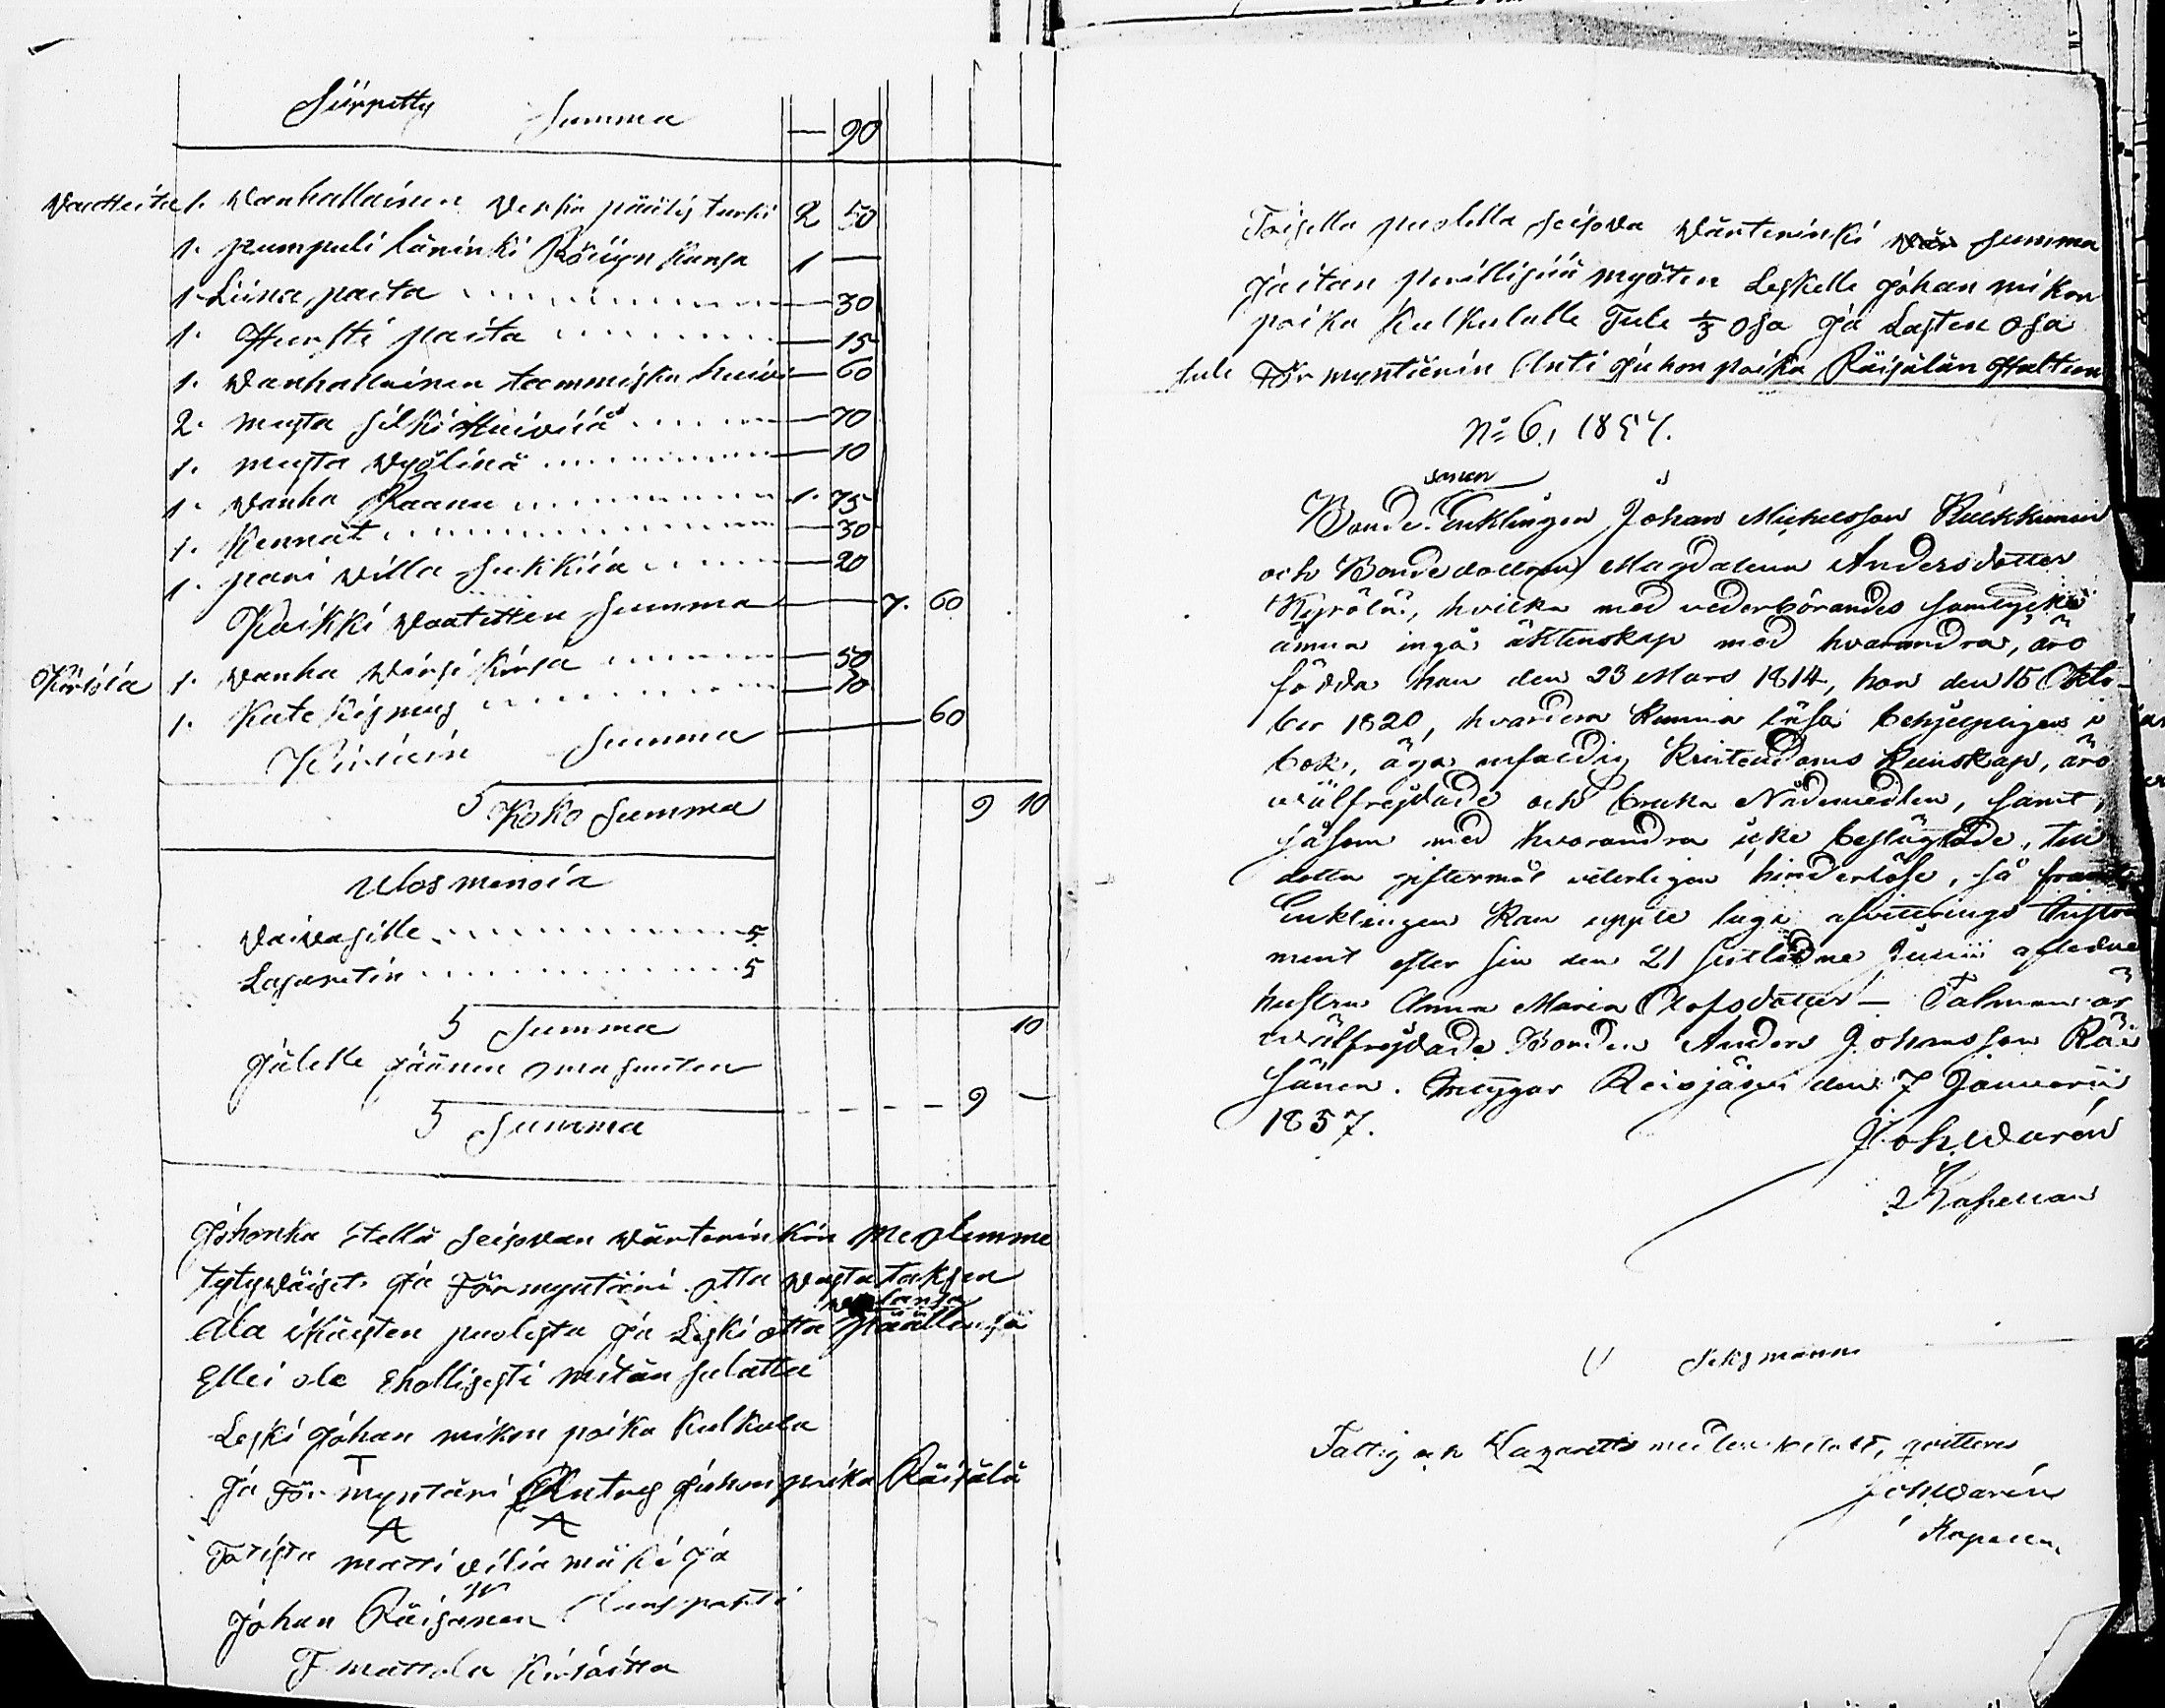 Siirretty Summa — 90
Vaatteita 1. Wanhallainen Verka päälis turki 2 50
1. pumpuli läninki Röijyn kansa 1 —
1. Liina, paita — 30
1. Hursti paita — 15
1. Wanhallainen tammiska huivi — 60
2. musta silki Huiviä — 70
1. musta Vyölinä — 10
1. Vanha Raanu 1. 75
1. Kennät — 30
1. pari Villa Sukkiia — 20
Kaikki Vaatetten Summa — 7. 60
Kirioia 1. Vanha Wirsi kirja — 50
1. Katekismus — 10
Kirioin Summa — 60
S Koko Summa 9 10
Ulos menoia
Vaivasille 5
Lasaretin 5
S Summa 10
Jälelle jäänen omasuuten
S Summa 9 —
Johonka Itellä seisovan Värterinkin Me olemme
tytyväiset. Ja Förmyntäri otta vastataksen
Ala ikäisten puolesta Ja Leski otta valansa päällensä
Ellei ole Eholisesti mitän salattu
Leski Johan mikon poika Kulkula
Ja Förmyntäri Antres Juhon poika Räisälä
Totista matti vilia mäki Ja
Johan Räisänen
F. mattola kirioitta
Toisella puolella seisova Värterinki Summa
Jaitan perillisiiä myöten Leskelle Johan mikon
poika Kulkulalle Tule 1/3 osa Ja Lasten osa
tule Förmyntärin Anti Juhon poika Räisälän Haltun
No 6, 1857.
sonen
Bonde Enklingen Johan Michelsson Kulkkunen
och Bondedottren Magdalena Andersdotter
Kyrölä, hvilka med vederbörandes samtycke
ämna ingå äktenskap med hvarandra, äro
födda han den 23 Mars 1814, hon den 15 Okto-
ber 1820, hvardera kunna läsa behjelpligen i
bok, äga enfaldig kristendoms kunskap, äro
välfrejdade och bruka Nådemedlen, samt,
såsom med hvarandra icke beslägtade, till
detta giftermål veterligen hinderlöse, så framt
Enklingen kan uppte laga afvittrings Instru-
ment efter sin den 21 sistlidne Junii aflidne
hustru Anna Maria Olofsdotter — Talman är
välfrejdade Bonden Anders Johansson Räi-
sänen. Intygar Reisjärvi den 7 Januarii
1857.
Joh. Warén
Kapellan
Fattig och Lazaretts medlen betalt, qvitteras
Joh Warén
Kapellan